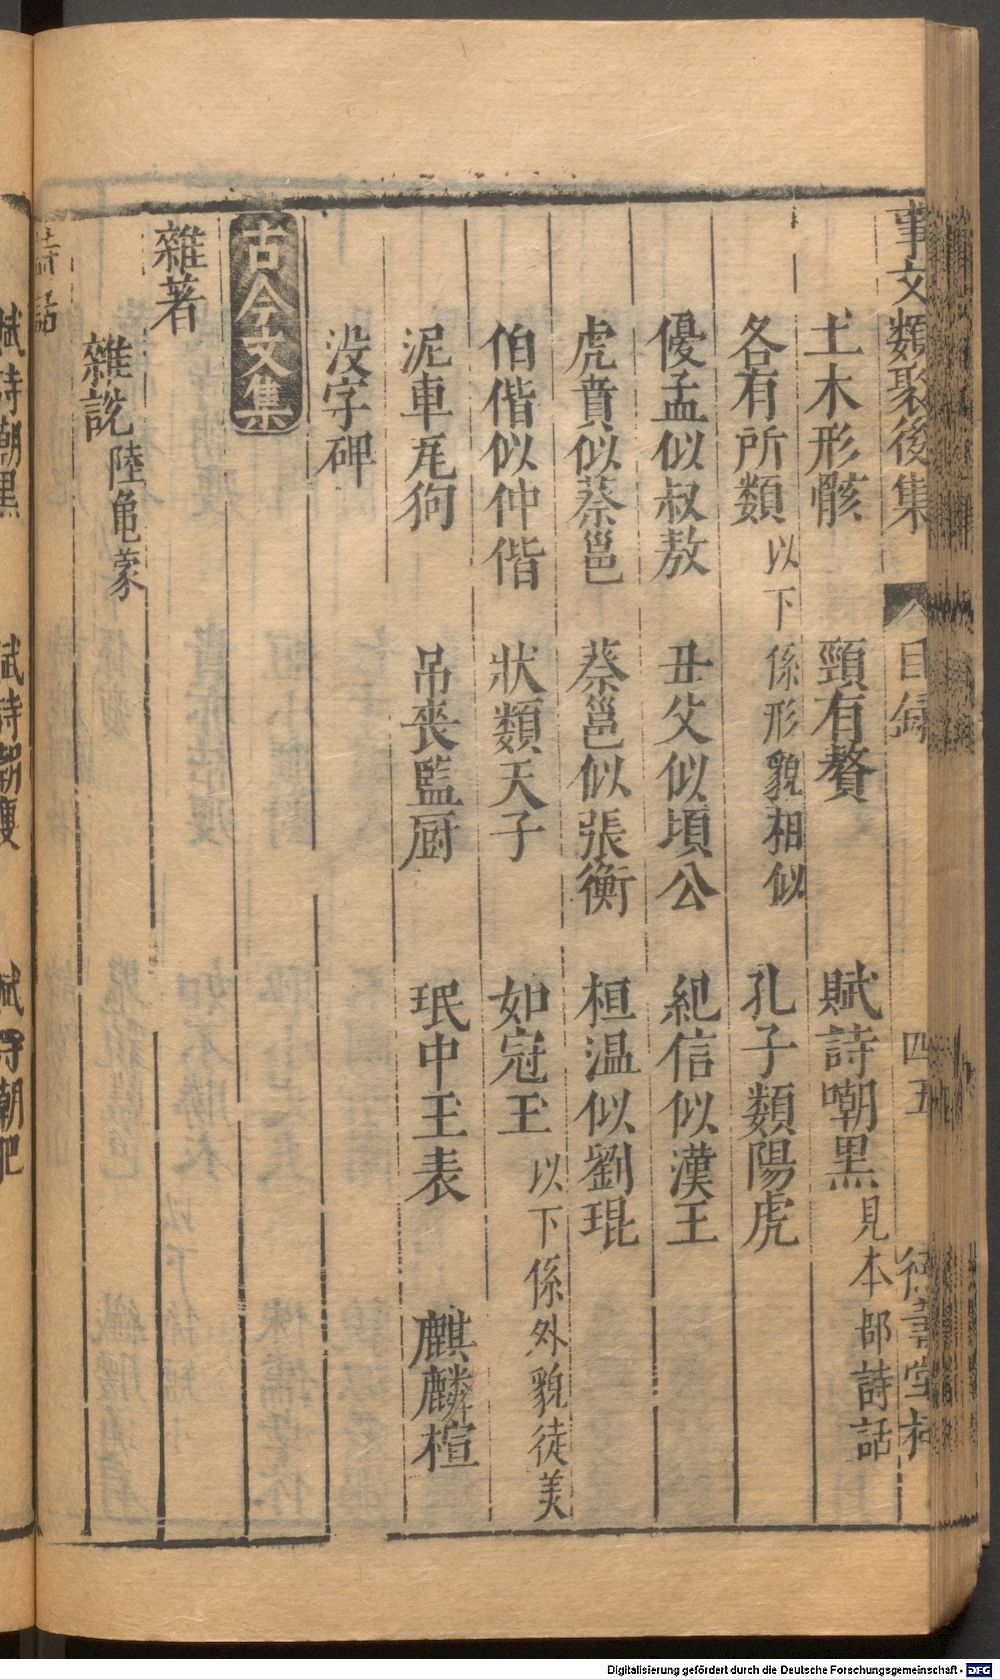 事文類聚後集 目錄 四五
土木形骸 頸有贅 賦詩嘲黑 見本部詩話
各有所類 以下係形貌相似 孔子類陽虎
優孟似叔敖 丑父似頃公 紀信似漢王
虎賁似蔡邕 蔡邕似張衡 桓温似劉琨
伯偕似仲偕 狀類天子 如冠玉 以下係外貌徒美
泥車瓦狗 吊喪監厨 珉中玉表 麒麟楦
没字碑
古今文集
雜著
雜説 陸龜蒙
詩話
賦詩嘲黑 賦詩嘲瘦 賦詩嘲肥
Digitalisierung gefördert durch die Deutsche Forschungsgemeinschaft - DFG